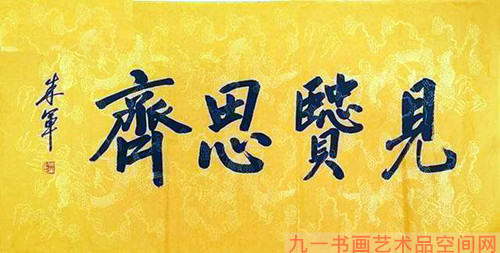 見賢思齊
朱軍
九一书画艺术品空间网